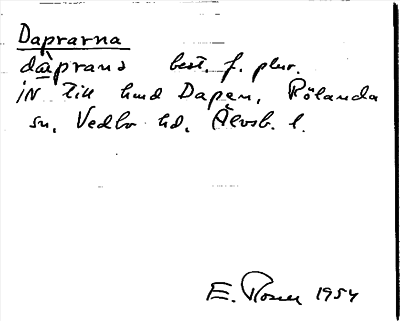 Daprarna
dàprana best. f. plur.
IN till hmd Dapen, Rölanda
sn, Vedbo hd, Älvsb. l.
E. Rosen 1954